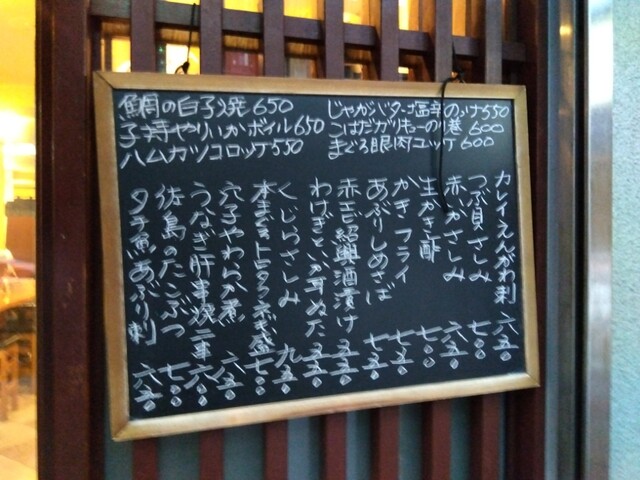 鯛の白子焼 650
子持やりいかボイル 650
ハムカツコロッケ 550
じゃがバター塩辛のっけ 550
こはだガリキューの巻 600
まぐろ眼肉ユッケ 600
カレイえんがわ刺 六五〇
つぶ貝さしみ 七〇〇
赤いかさしみ 六五〇
生かき酢 七〇〇
かきフライ 七五〇
あぶりしめさば 七五〇
赤エビ紹興酒漬け 五五〇
わけぎといか耳ぬた 五五〇
くじらさしみ 九五〇
本まぐろトロ 七〇〇
穴子やわらか煮 六五〇
うなぎ肝串焼二本 六六〇
徳島のたこぶつ 七〇〇
タチ魚あぶり刺 六五〇